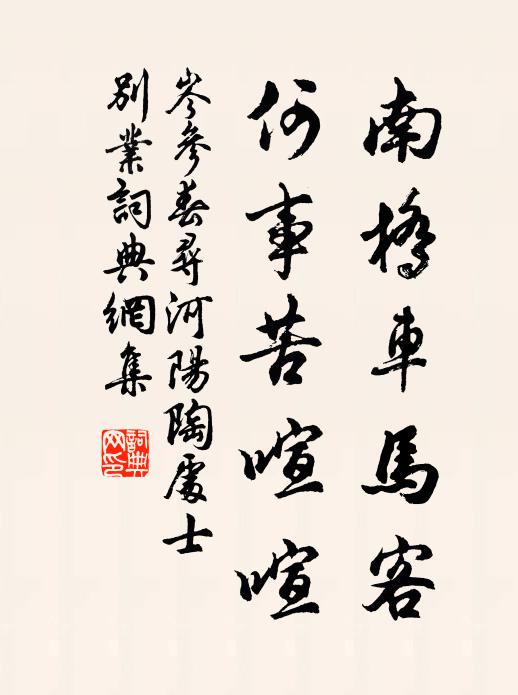 南橋車馬客
何事苦喧喧
岑參春尋河陽陶處士
別業詞典網集
詞典
网印